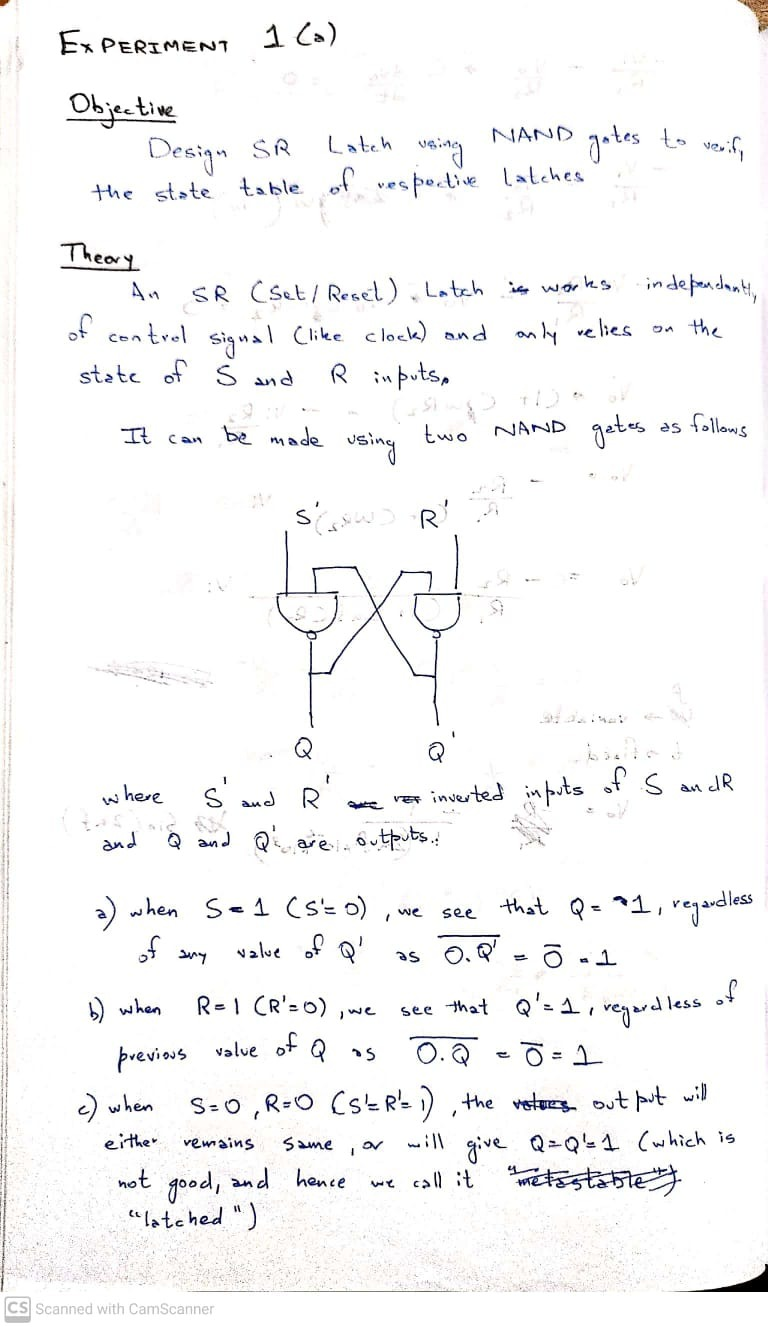 EXPERIMENT 1 (a)
Objective
Design SR Latch using NAND gates to verify
the state table of respective latches
Theory
An SR (Set / Reset) Latch is works independantly
of control signal (like clock) and only relies on the
state of S and R inputs.
It can be made using two NAND gates as follows
S' R'
Q Q'
where S' and R' are inverted inputs of S and R
and Q and Q' are outputs.
a) when S=1 (S'=0), we see that Q = 1, regardless
of any value of Q' as \overline{0.Q'} = \overline{0} = 1
b) when R=1 (R'=0), we see that Q'=1, regardless of
previous value of Q as \overline{0.Q} = \overline{0} = 1
c) when S=0, R=0 (S'=R'=1), the values output will
either remains same, or will give Q=Q'=1 (which is
not good, and hence we call it "metastable")
"latched")
CS Scanned with CamScanner